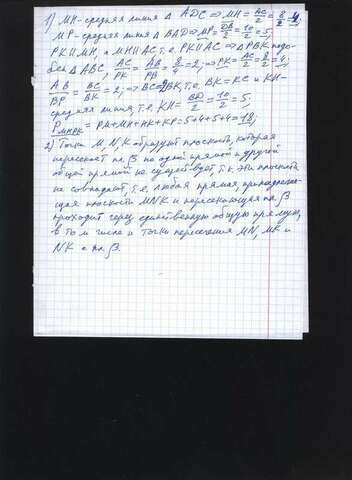 1) MN - средняя линия Δ ADC ⇒ MN = AC/2 = 8/2 = 4,
MP - средняя линия Δ BAD ⇒ MP = DB/2 = 10/2 = 5,
PK II MN, а MN II AC, т.е. PK II AC ⇒ Δ PBK подо-
бен Δ ABC, AC/PK = AB/PB = 8/4 = 2; ⇒ PK = AC/2 = 8/2 = 4,
AB/BP = BC/BK = 2; ⇒ BC = 2BK, т.е. BK = KC и KN -
средняя линия, т.е. KN = BD/2 = 10/2 = 5;
P MNPK = PM + MN + NK + KP = 5+4+5+4 = 18;
2) Точки M, N, K образуют плоскость, которая
пересекает пл. β по одной прямой и другой
общей прямой не существует, т.к. эти плоскости
не совпадают, т.е. любая прямая, принадлежа-
щая плоскости MNK и пересекающая пл. β
проходит через единственную общую прямую,
в том числе и точки пересечения MN, MK и
NK с пл. β.